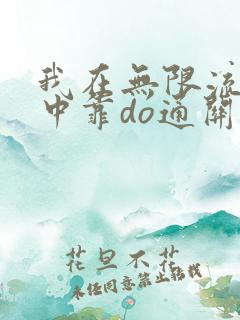 我在無限流
中靠do通關
花旦不花
未經同意禁止轉載